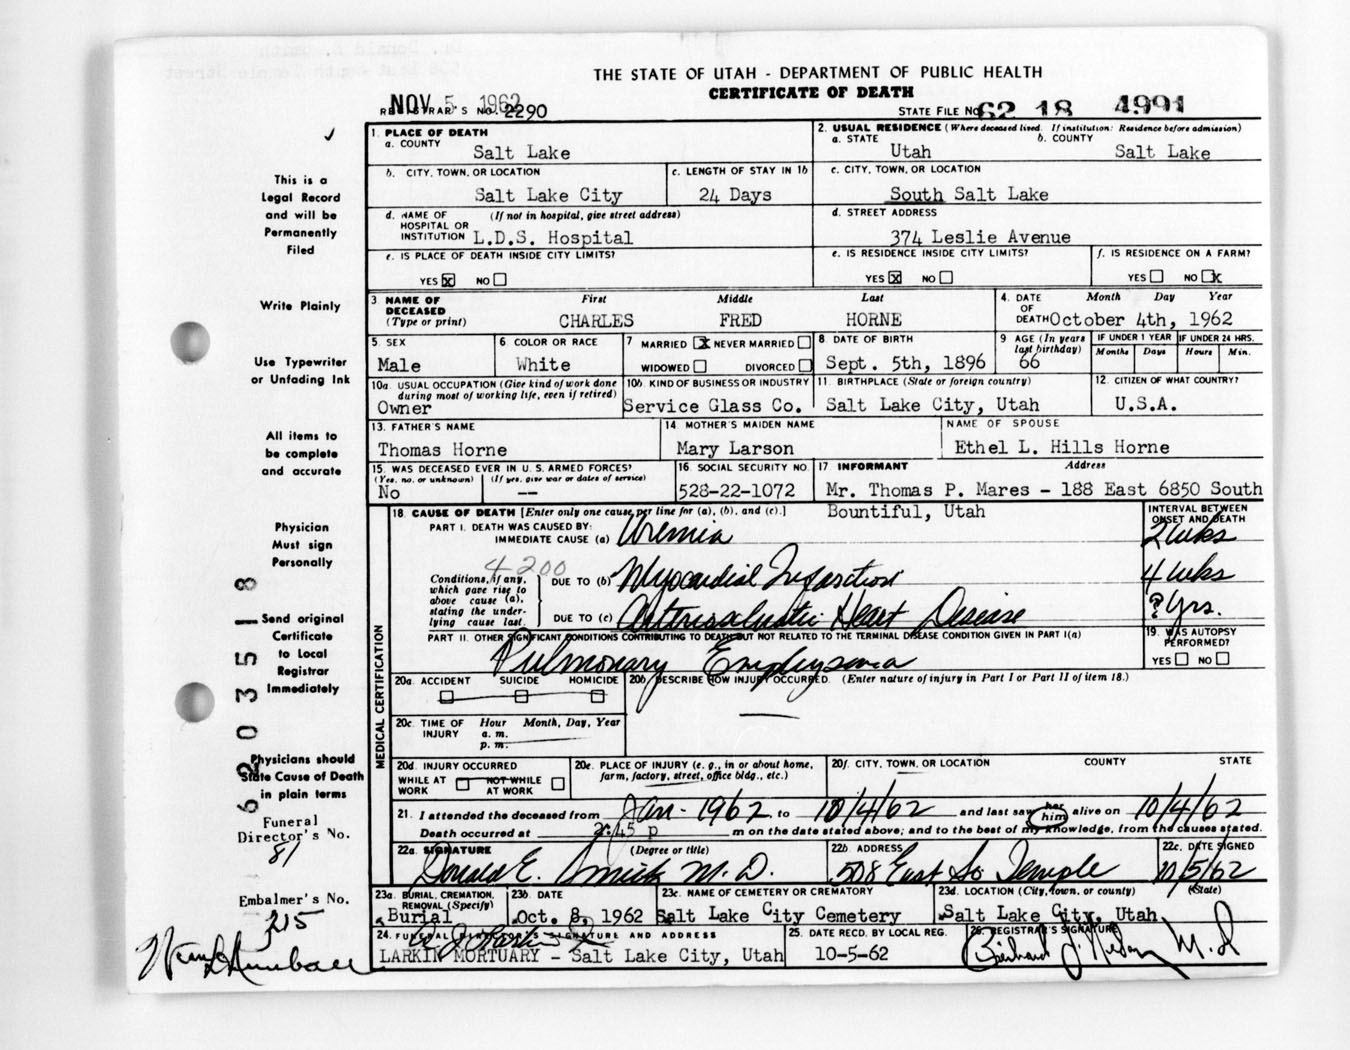 THE STATE OF UTAH - DEPARTMENT OF PUBLIC HEALTH
CERTIFICATE OF DEATH
NOV 5 1962
REGISTRAR'S NO. 2290
STATE FILE NO. 62 18 4991
This is a
Legal Record
and will be
Permanently
Filed
Write Plainly
Use Typewriter
or Unfading Ink
All items to
be complete
and accurate
Physician
Must sign
Personally
Send original
Certificate
to Local
Registrar
Immediately
Physicians should
State Cause of Death
in plain terms
Funeral
Director's No.
81
Embalmer's No.
215
62 0351 8
1. PLACE OF DEATH
a. COUNTY
Salt Lake
2. USUAL RESIDENCE (Where deceased lived. If institution: Residence before admission)
a. STATE b. COUNTY
Utah Salt Lake
b. CITY, TOWN, OR LOCATION
Salt Lake City
c. LENGTH OF STAY IN 1b
24 Days
c. CITY, TOWN, OR LOCATION
South Salt Lake
d. NAME OF (If not in hospital, give street address)
HOSPITAL OR
INSTITUTION L.D.S. Hospital
d. STREET ADDRESS
374 Leslie Avenue
e. IS PLACE OF DEATH INSIDE CITY LIMITS?
YES X NO
e. IS RESIDENCE INSIDE CITY LIMITS?
YES X NO
f. IS RESIDENCE ON A FARM?
YES NO X
3. NAME OF
DECEASED
(Type or print)
First Middle Last
CHARLES FRED HORNE
4. DATE Month Day Year
OF
DEATH October 4th, 1962
5. SEX
Male
6. COLOR OR RACE
White
7 MARRIED X NEVER MARRIED
WIDOWED DIVORCED
8. DATE OF BIRTH
Sept. 5th, 1896
9 AGE (In years
last birthday)
66
IF UNDER 1 YEAR IF UNDER 24 HRS.
Months Days Hours Min.
10a. USUAL OCCUPATION (Give kind of work done
during most of working life, even if retired)
Owner
10b. KIND OF BUSINESS OR INDUSTRY
Service Glass Co.
11. BIRTHPLACE (State or foreign country)
Salt Lake City, Utah
12. CITIZEN OF WHAT COUNTRY?
U.S.A.
13. FATHER'S NAME
Thomas Horne
14 MOTHER'S MAIDEN NAME
Mary Larson
NAME OF SPOUSE
Ethel L. Hills Horne
15. WAS DECEASED EVER IN U.S. ARMED FORCES?
(Yes, no, or unknown) (If yes, give war or dates of service)
No --
16. SOCIAL SECURITY NO.
528-22-1072
17 INFORMANT Address
Mr. Thomas P. Mares - 188 East 6850 South
Bountiful, Utah
MEDICAL CERTIFICATION
18. CAUSE OF DEATH [Enter only one cause per line for (a), (b), and (c).]
INTERVAL BETWEEN
ONSET AND DEATH
PART I. DEATH WAS CAUSED BY:
IMMEDIATE CAUSE (a) Uremia 2 wks
4200
Conditions, if any,
which gave rise to
above cause (a),
stating the under-
lying cause last.
DUE TO (b) Myocardial Infarction 4 wks
DUE TO (c) Arteriosclerotic Heart Disease ? yrs.
PART II. OTHER SIGNIFICANT CONDITIONS CONTRIBUTING TO DEATH BUT NOT RELATED TO THE TERMINAL DISEASE CONDITION GIVEN IN PART I(a)
Pulmonary Emphysema
19. WAS AUTOPSY
PERFORMED?
YES NO
20a. ACCIDENT SUICIDE HOMICIDE
20b. DESCRIBE HOW INJURY OCCURRED. (Enter nature of injury in Part I or Part II of item 18.)
20c. TIME OF Hour Month, Day, Year
INJURY a. m.
p. m.
20d. INJURY OCCURRED
WHILE AT NOT WHILE
WORK AT WORK
20e. PLACE OF INJURY (e. g., in or about home,
farm, factory, street, office bldg., etc.)
20f. CITY, TOWN, OR LOCATION COUNTY STATE
21. I attended the deceased from Jan - 1962, to 10/4/62 and last saw her him alive on 10/4/62
Death occurred at 2:45 p m on the date stated above; and to the best of my knowledge, from the causes stated.
22a. SIGNATURE (Degree or title)
Donald E. Smith M. D.
22b. ADDRESS
508 East So. Temple
22c. DATE SIGNED
10/5/62
23a. BURIAL, CREMATION,
REMOVAL (Specify)
Burial
23b. DATE
Oct. 8, 1962
23c. NAME OF CEMETERY OR CREMATORY
Salt Lake City Cemetery
23d. LOCATION (City, town, or county) (State)
Salt Lake City, Utah
24. FUNERAL DIRECTOR'S SIGNATURE AND ADDRESS
LARKIN MORTUARY - Salt Lake City, Utah
25. DATE RECD. BY LOCAL REG.
10-5-62
26. REGISTRAR'S SIGNATURE
M. D